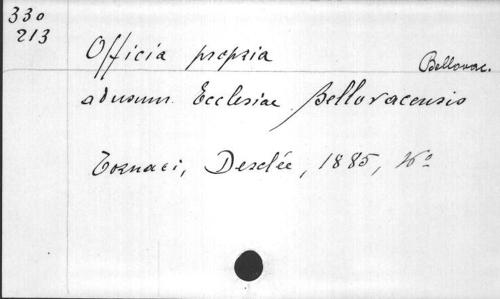 330
213
Officia propria
Bellovac.
ad usum Ecclesiae Bellovacensis
Tornaci, Desclée, 1885,